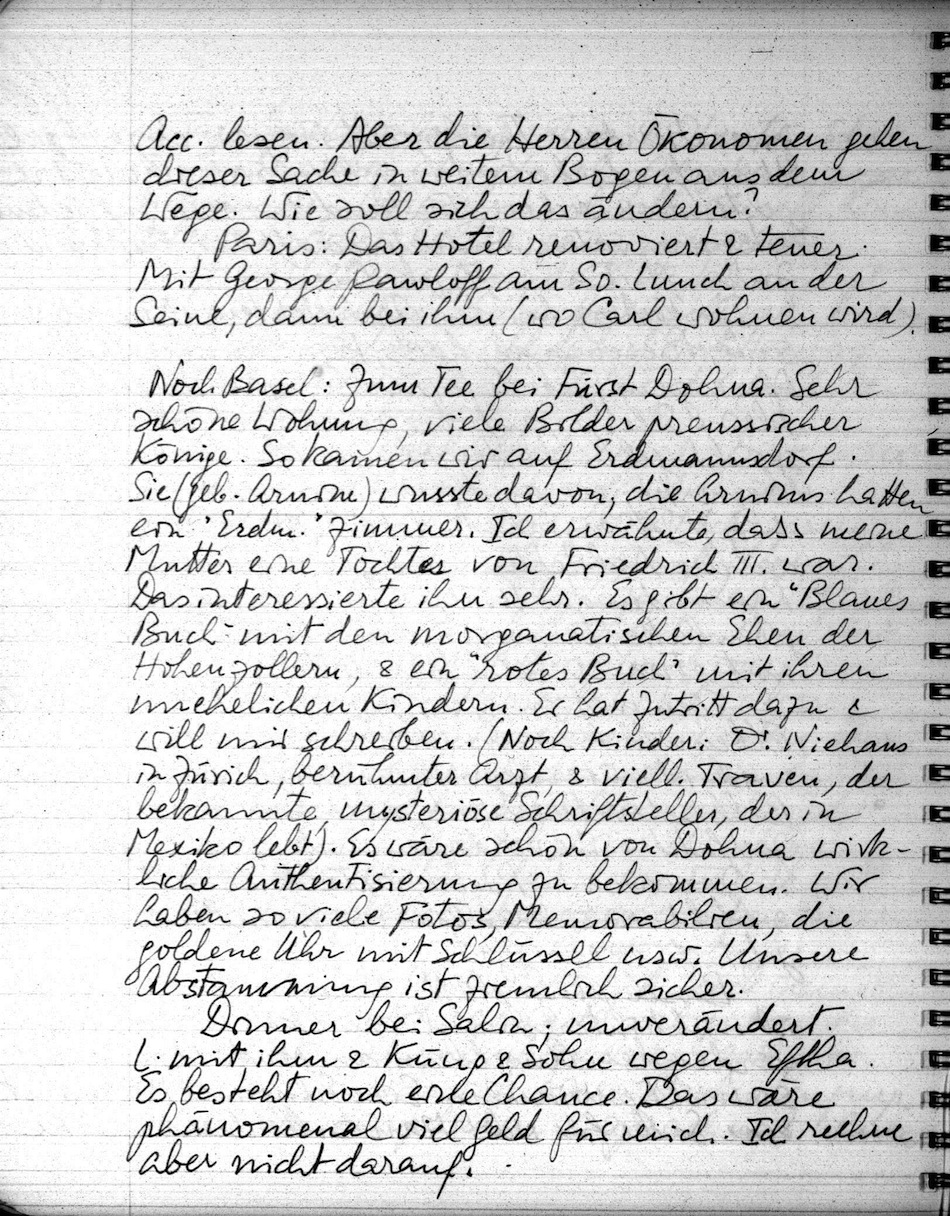 Acc. lesen. Aber die Herren Ökonomen gehen
dieser Sache in weitem Bogen aus dem
Wege. Wie soll sich das ändern?
Paris: Das Hotel renoviert & teuer.
Mit George Pawloff am So. Lunch an der
Seine, dann bei ihm (wo Carl wohnen wird).
Noch Basel: Zum Tee bei Fürst Dohna. Sehr
schöne Wohnung, viele Bilder preussischer
Könige. So kamen wir auf Erdmannsdorf.
Sie (geb. Arnim) wusste davon, die Arnims hatten
ein "Erdm." Zimmer. Ich erwähnte, dass meine
Mutter eine Tochter von Friedrich III. war.
Das interessierte ihn sehr. Es gibt ein "Blaues
Buch" mit den morganatischen Ehen der
Hohenzollern, & ein "rotes Buch" mit ihren
unehelichen Kindern. Er hat Zutritt dazu &
will mir schreiben. (Noch Kinder: Dr. Niehans
in Zürich, berühmter Arzt, & viell. Traven, der
bekannte, mysteriöse Schriftsteller, der in
Mexiko lebt). Es wäre schön von Dohna wirk-
liche Authentisierung zu bekommen. Wir
haben so viele Fotos, Memorabilien, die
goldene Uhr mit Schlüssel usw. Unsere
Abstammung ist ziemlich sicher.
Dinner bei Salin; unverändert.
L. mit ihm & Küng & Sohn wegen Efha.
Es besteht noch eine Chance. Das wäre
phänomenal viel Geld für mich. Ich rechne
aber nicht darauf.